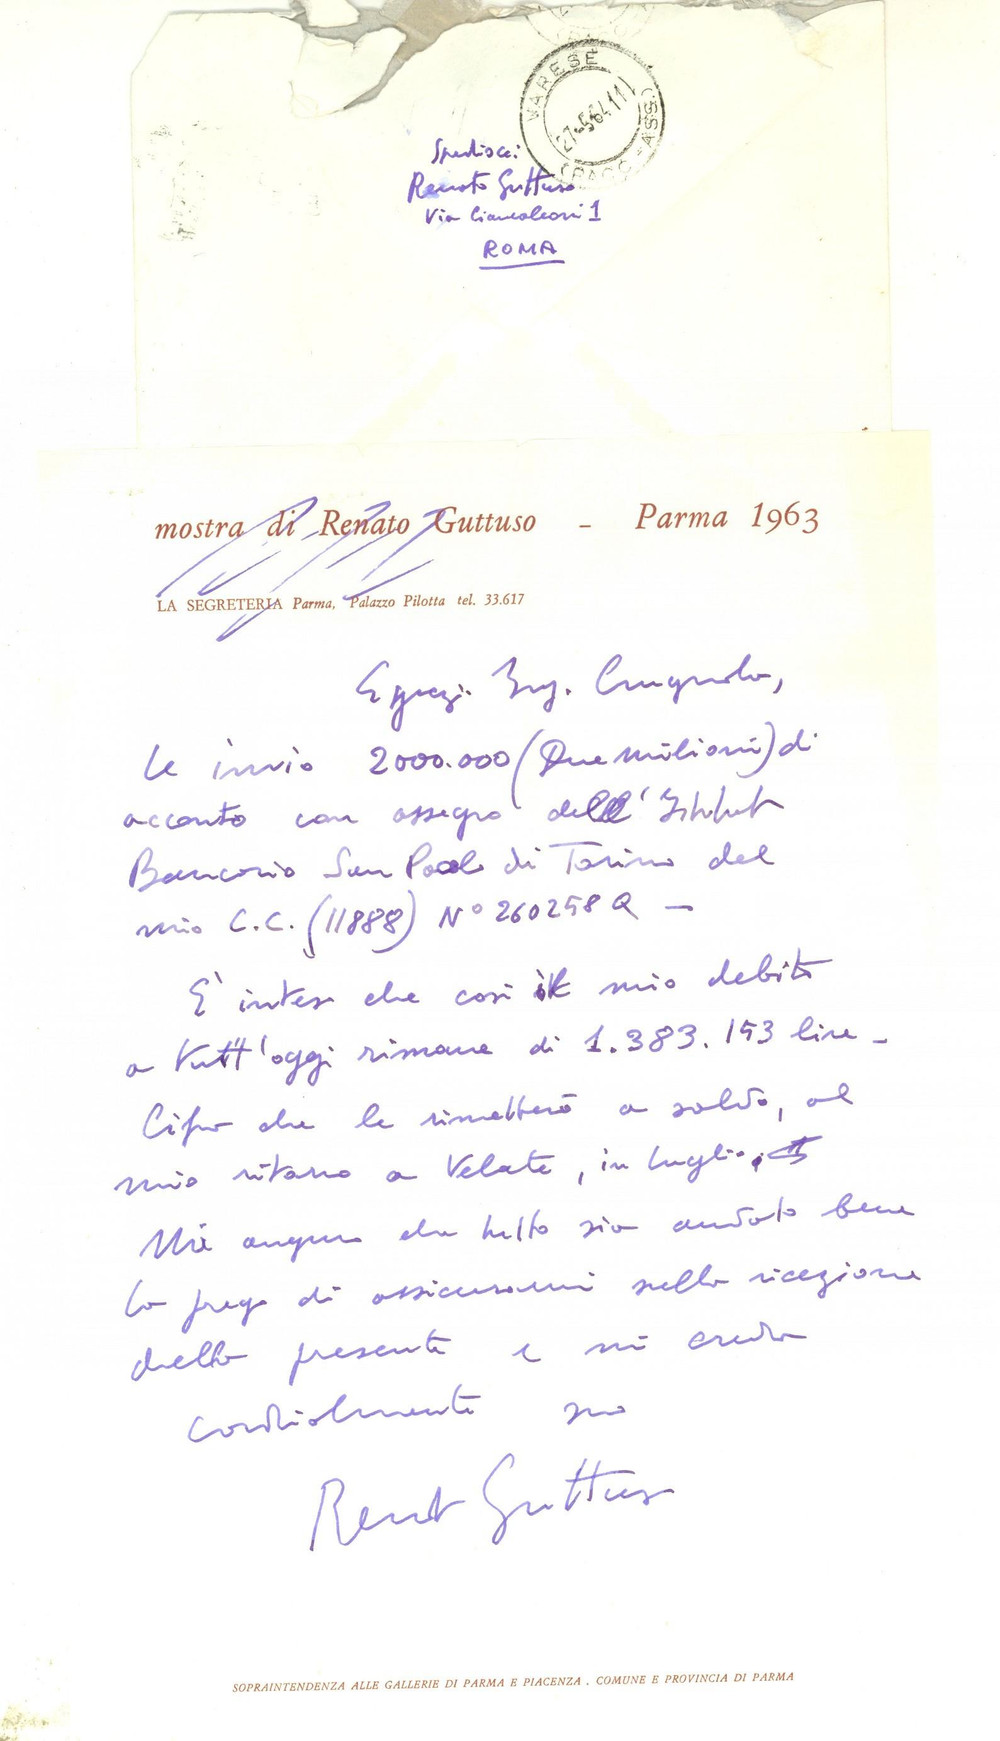 VARESE
27-5-64 11
Spedisce:
Renato Guttuso
Via Ciancaleoni 1
ROMA
mostra di Renato Guttuso – Parma 1963
LA SEGRETERIA Parma, Palazzo Pilotta tel. 33.617
Egregi. Ing. Crugnola,
Le invio 2000.000 (Due milioni) di
acconto con assegno dell'Istituto
Bancario San Paolo di Torino del
mio C.C. (11888) N° 260258 Q —
E' inteso che così il mio debito
a tutt'oggi rimane di 1.383.153 lire –
Cifra che le rimetterò a saldo, al
mio ritorno a Velate, in luglio.
Mi auguro che tutto sia andato bene
La prego di assicurarmi sulla ricezione
della presente e mi creda
cordialmente suo
Renato Guttuso
SOPRAINTENDENZA ALLE GALLERIE DI PARMA E PIACENZA . COMUNE E PROVINCIA DI PARMA